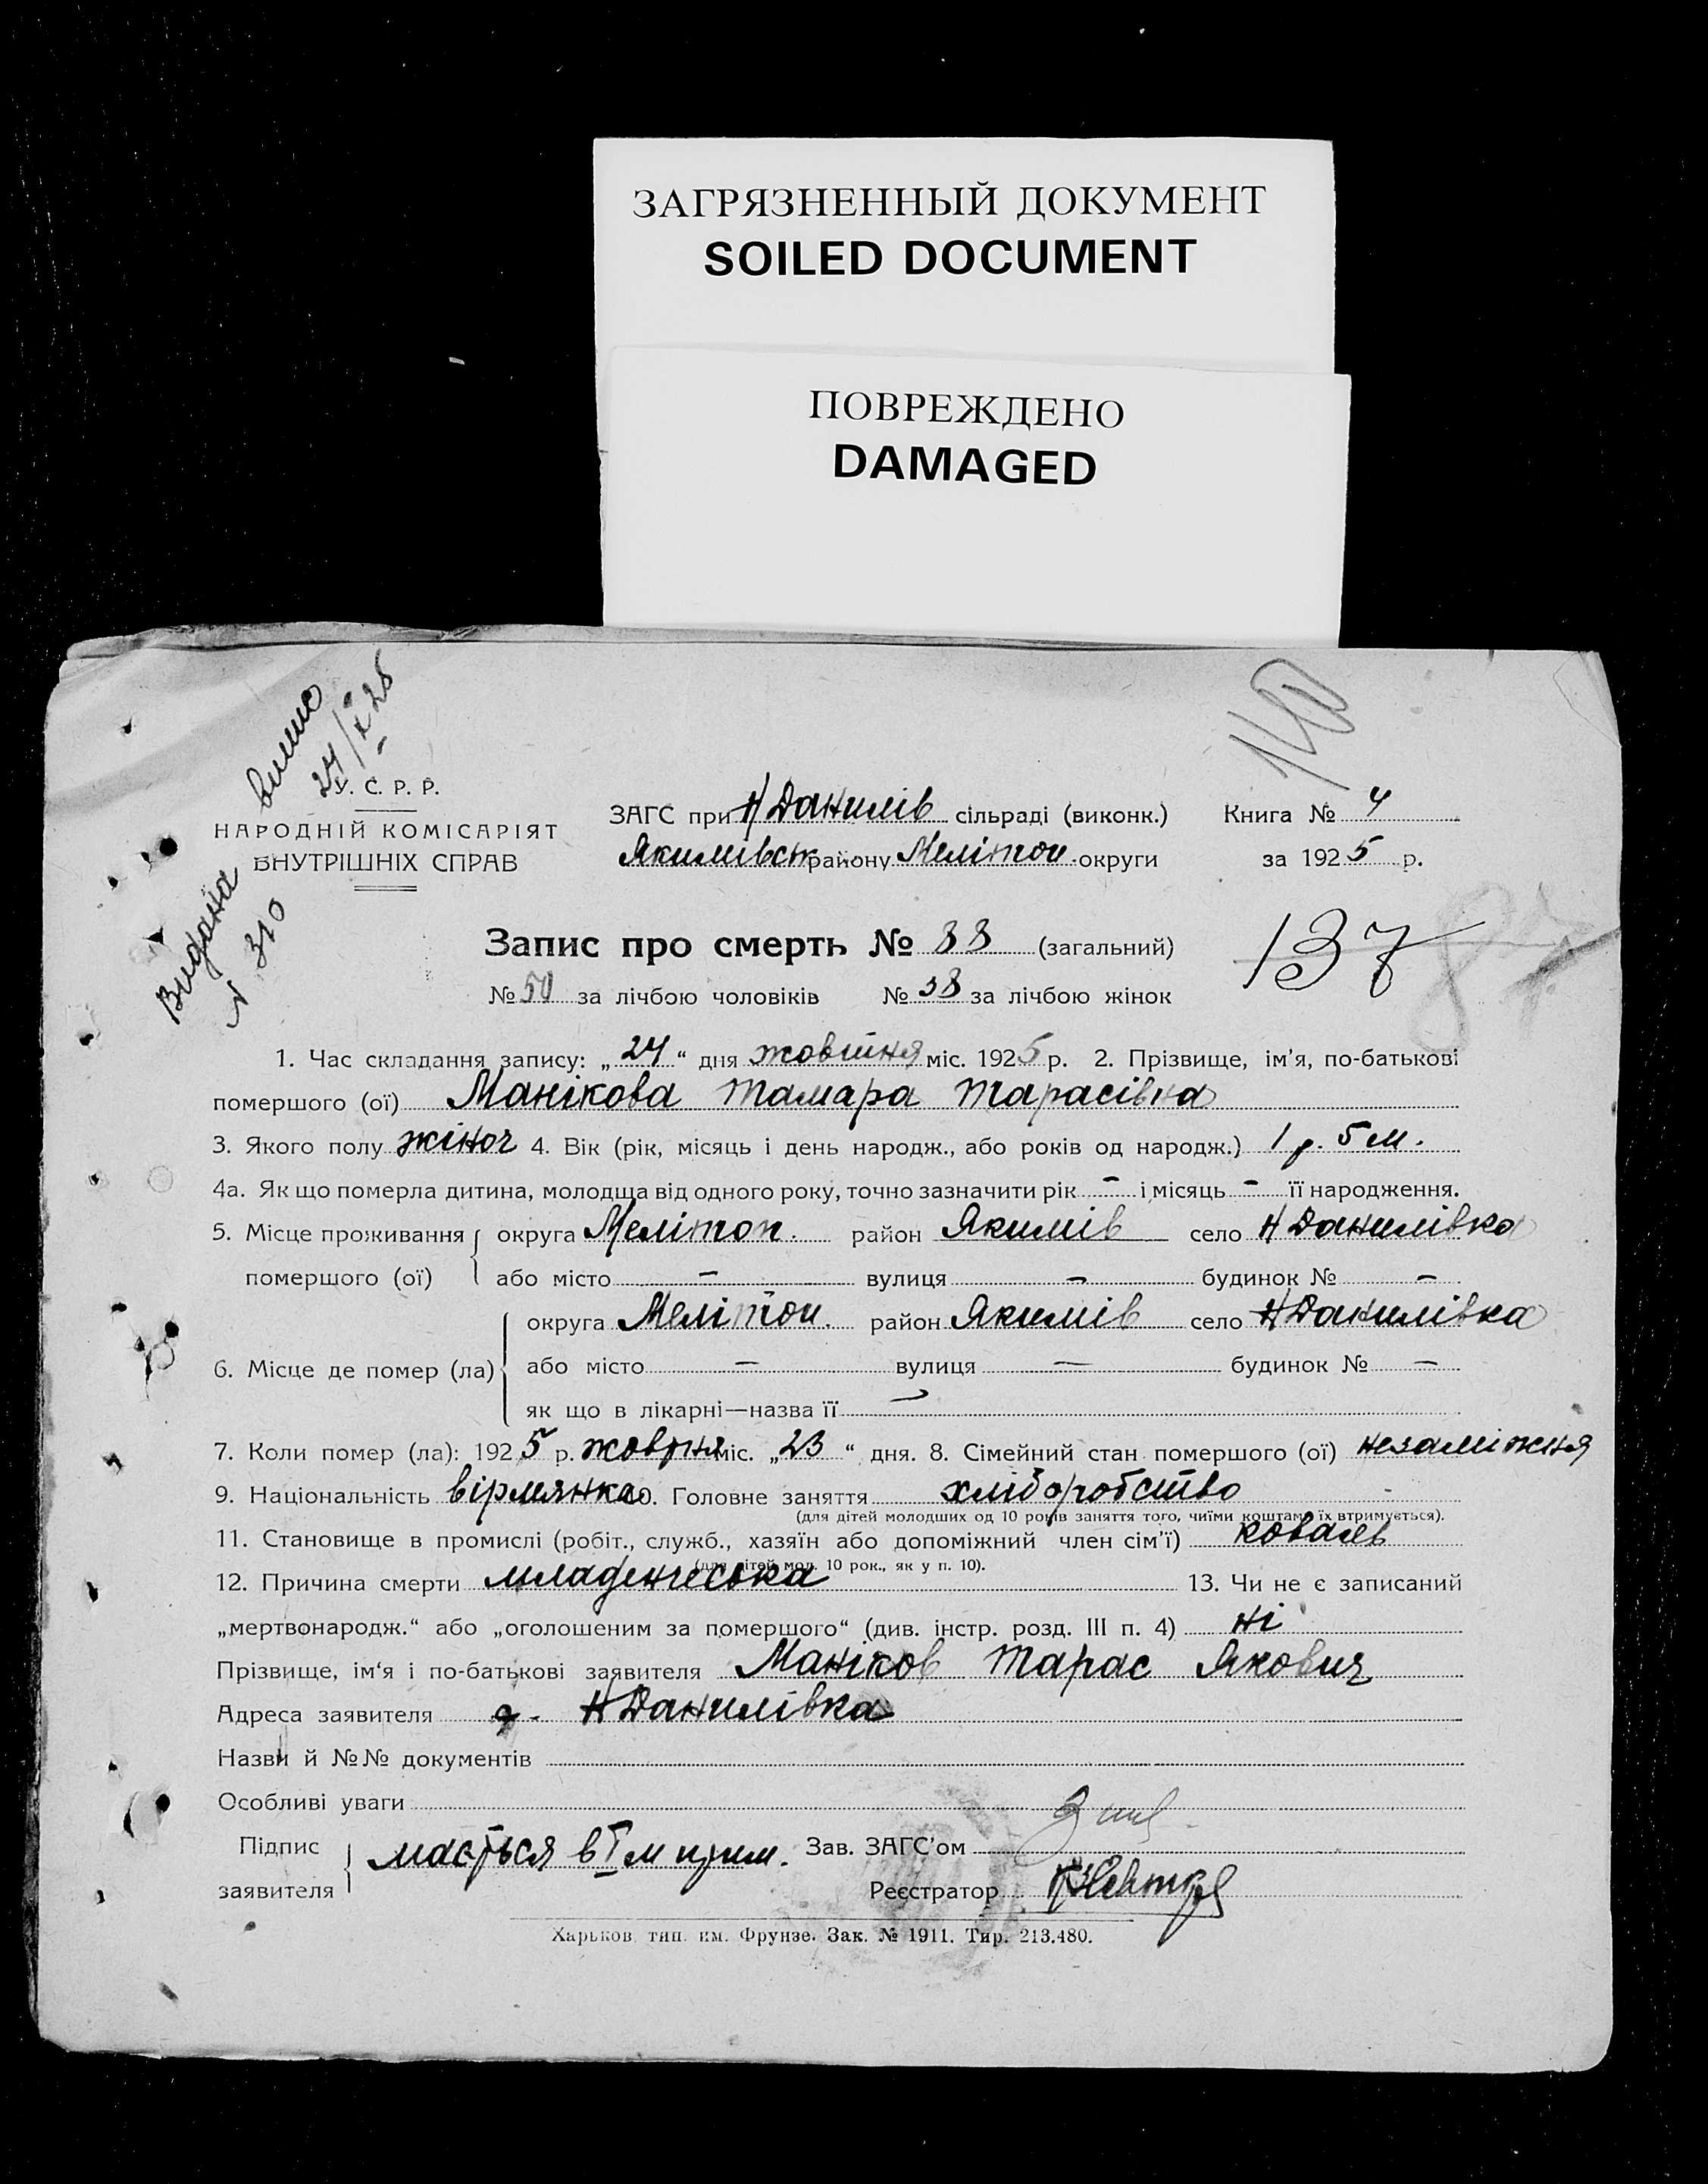 ЗАГРЯЗНЕННЫЙ ДОКУМЕНТ
SOILED DOCUMENT
ПОВРЕЖДЕНО
DAMAGED
140
Видана випис
№ 310 24/X 25
У. С. Р. Р.
НАРОДНІЙ КОМІСАРІЯТ
ВНУТРІШНІХ СПРАВ
ЗАГС при Н Данилів сільраді (виконк.) Книга № 4
Якимівськ району Мелітоп. округи за 1925 р.
Запис про смерть № 88 (загальний)
137
№ 50 за лічбою чоловіків № 38 за лічбою жінок
1. Час складання запису: „24“ дня жовтня міс. 1925 р. 2. Прізвище, ім’я, по-батькові
помершого (ої) Манікова Тамара Тарасівна
3. Якого полу жіноч 4. Вік (рік, місяць і день народж., або років од народж.) 1 р. 5 м.
4а. Як що померла дитина, молодща від одного року, точно зазначити рік – і місяць – її народження.
5. Місце проживання округа Мелітоп. район Якимів село Н Данилівка
помершого (ої) або місто – вулиця – будинок № –
округа Мелітоп. район Якимів село Н Данилівка
6. Місце де помер (ла) або місто – вулиця – будинок № –
як що в лікарні—назва її –
7. Коли помер (ла): 1925 р. жовтня міс. „23“ дня. 8. Сімейний стан помершого (ої) незаміжня
9. Національність вірмянка 10. Головне заняття хліборобство
(для дітей молодших од 10 років заняття того, чиїми коштами їх втримується).
11. Становище в промислі (робіт., служб., хазяїн або допоміжний член сім’ї) коваль
(для дітей мол. 10 рок., як у п. 10).
12. Причина смерти младенческа 13. Чи не є записаний
„мертвонародж.“ або „оголошеним за помершого“ (див. інстр. розд. III п. 4) ні
Прізвище, ім‘я і по-батькові заявителя Маніков Тарас Якович
Адреса заявителя Н Данилівка
Назви й №№ документів
Особливі уваги
Підпис
заявителя мається в I м прим. Зав. ЗАГС’ом
Реєстратор
Харьков, тип. им. Фрунзе. Зак. № 1911. Тир. 213.480.